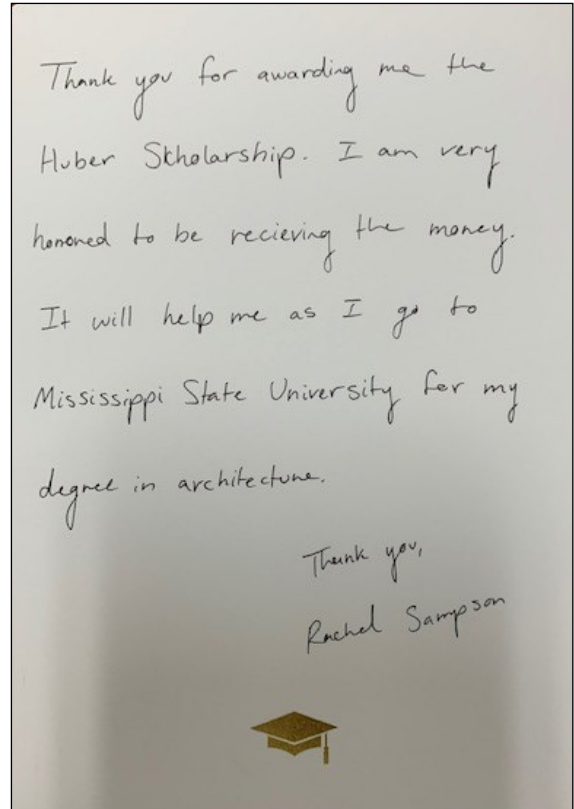 Thank you for awarding me the
Huber Skholarship. I am very
honored to be recieving the money.
It will help me as I go to
Mississippi State University for my
degree in architecture.
Thank you,
Rachel Sampson